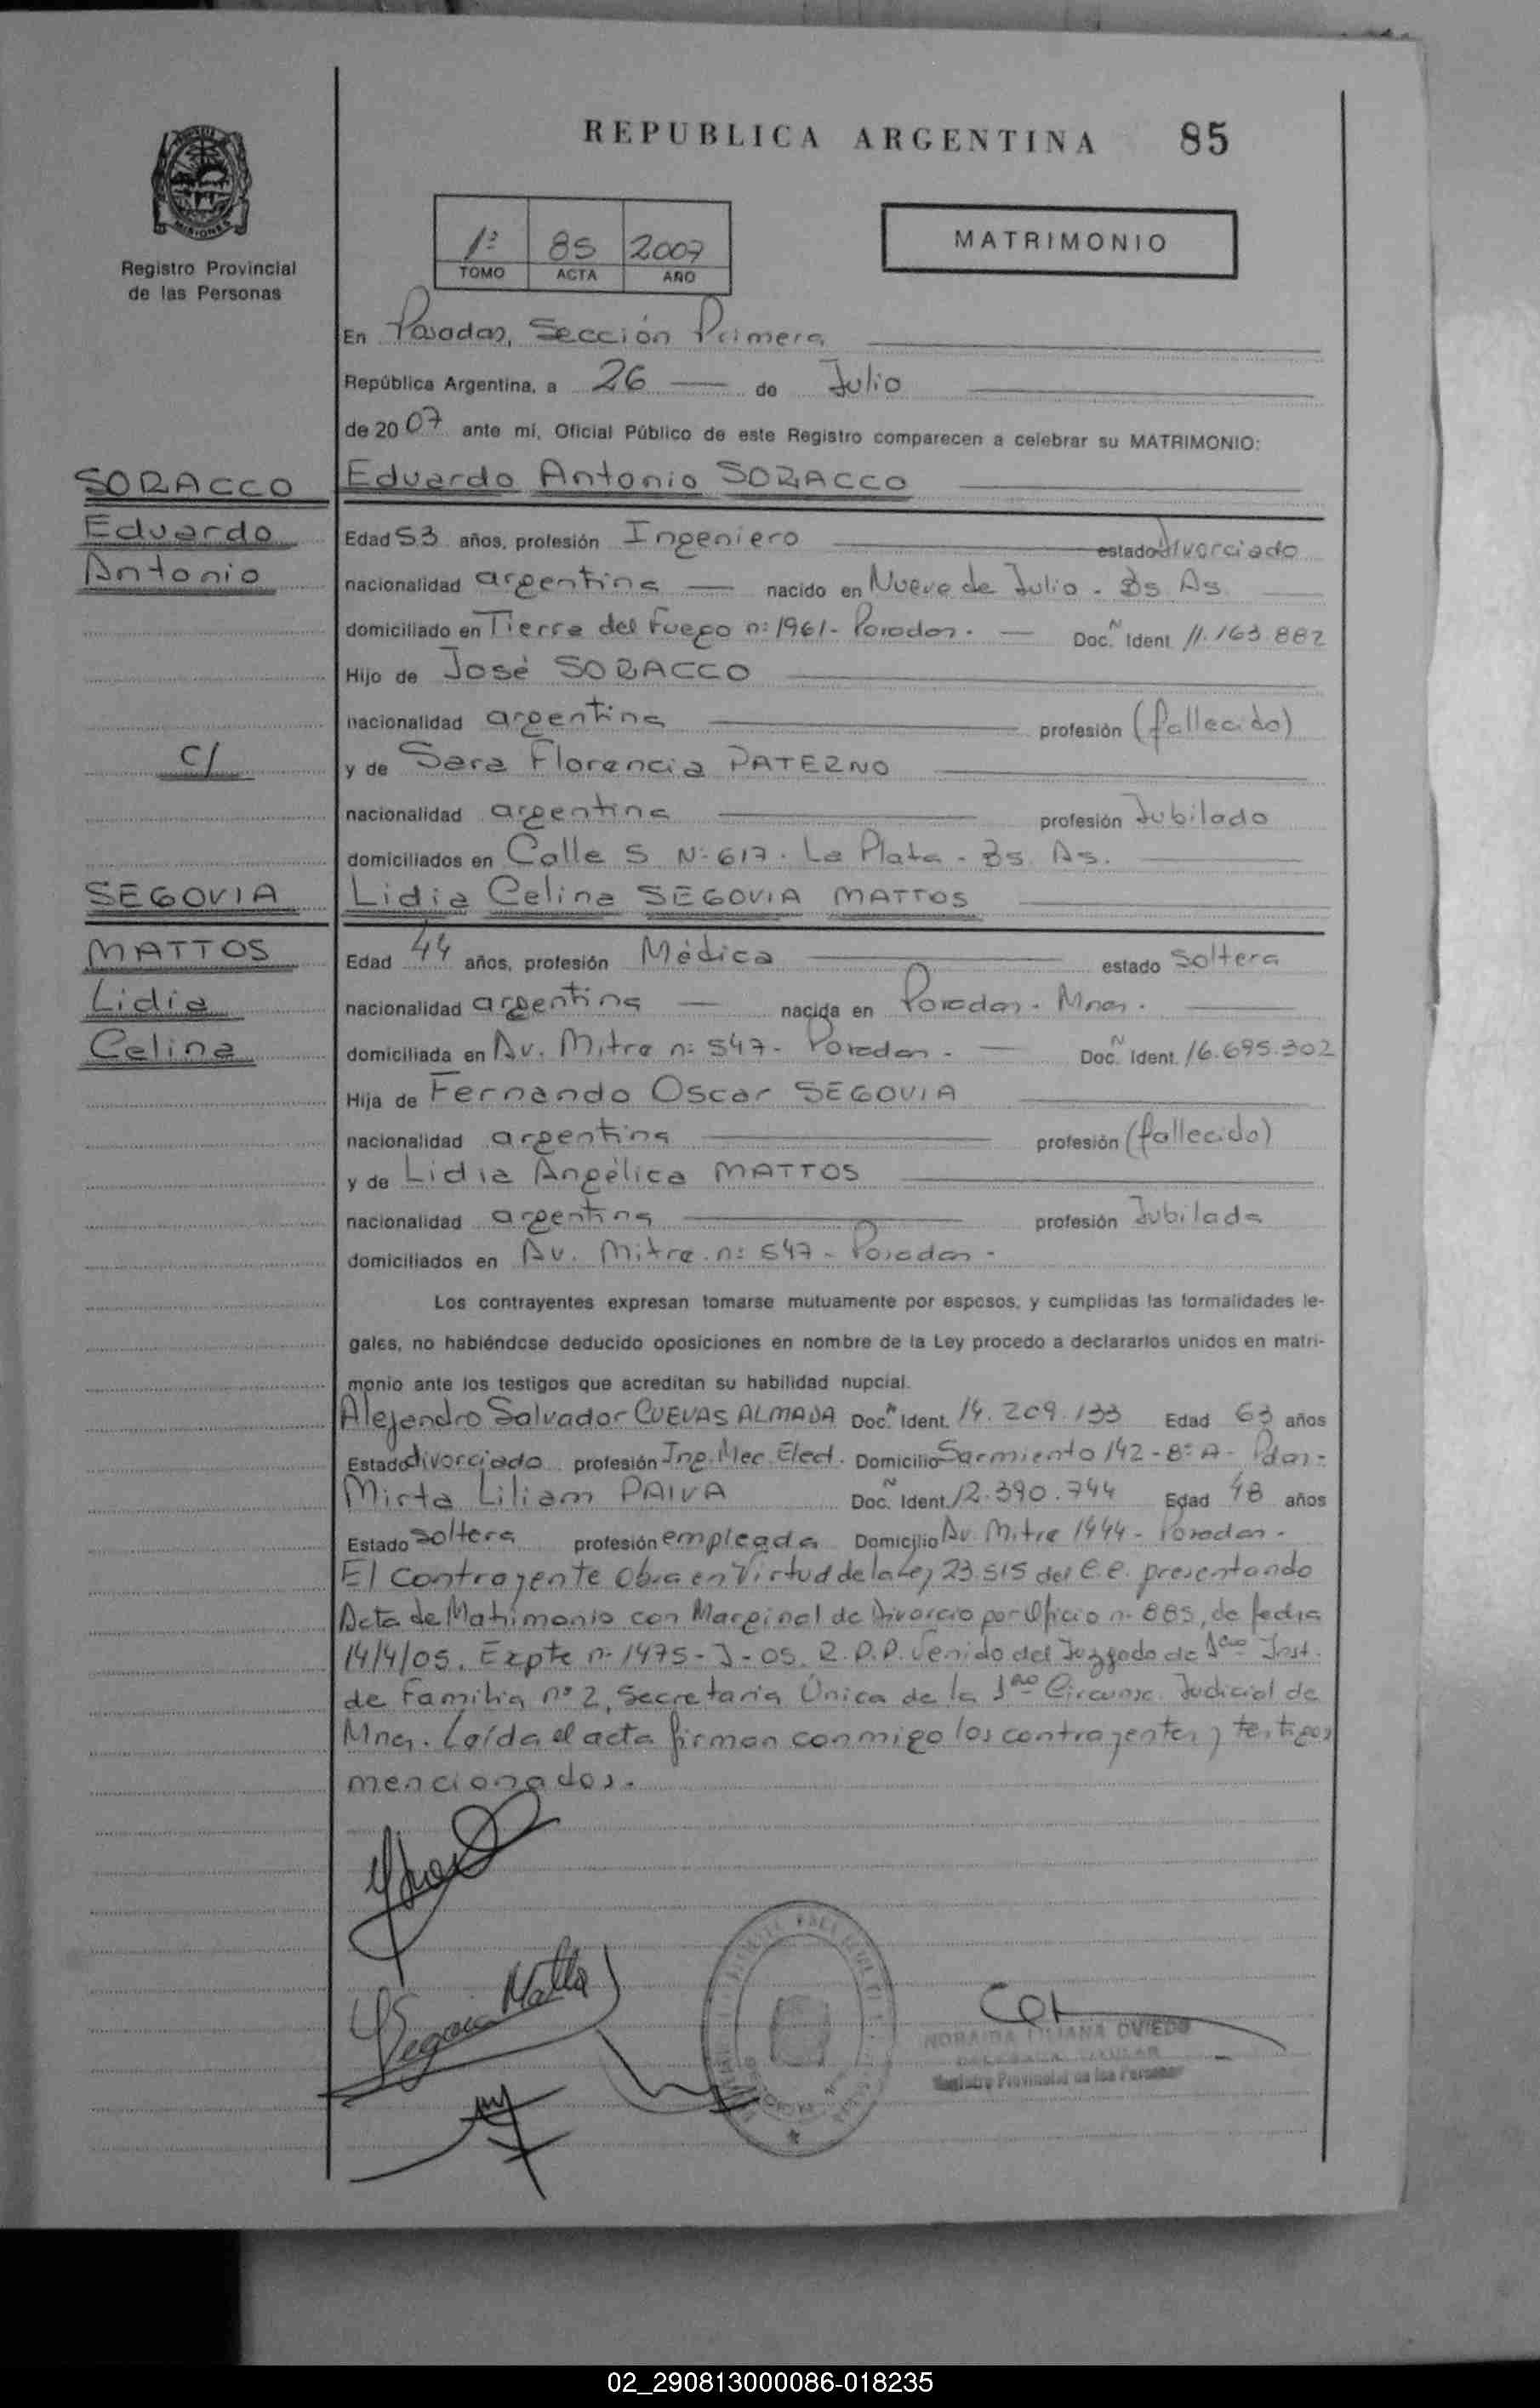 REPUBLICA ARGENTINA 85
MISIONES
Registro Provincial
de las Personas
1º 85 2007
TOMO ACTA AÑO
MATRIMONIO
En Posadas, Sección Primera
República Argentina, a 26 de Julio
de 2007 ante mí, Oficial Público de este Registro comparecen a celebrar su MATRIMONIO:
SORACCO Eduardo Antonio SORACCO
Eduardo Edad 53 años, profesión Ingeniero estado divorciado
Antonio nacionalidad argentina nacido en Nueve de Julio - Bs As
domiciliado en Tierra del Fuego nº 1961 - Posadas - Doc. N Ident 11.163.882
Hijo de José SORACCO
nacionalidad argentina profesión (fallecido)
c/ y de Sara Florencia PATERNO
nacionalidad argentina profesión Jubilado
domiciliados en Calle 5 Nº 617 - La Plata - Bs. As.
SEGOVIA Lidia Celina SEGOVIA MATTOS
MATTOS Edad 44 años, profesión Médica estado soltera
Lidia nacionalidad argentina nacida en Posadas - Mnes -
Celina domiciliada en Av. Mitre nº 547 - Posadas - Doc. N Ident. 16.695.302
Hija de Fernando Oscar SEGOVIA
nacionalidad argentina profesión (fallecido)
y de Lidia Angélica MATTOS
nacionalidad argentina profesión Jubilada
domiciliados en Av. Mitre nº 547 - Posadas -
Los contrayentes expresan tomarse mutuamente por esposos, y cumplidas las formalidades le-
gales, no habiéndose deducido oposiciones en nombre de la Ley procedo a declararlos unidos en matri-
monio ante los testigos que acreditan su habilidad nupcial.
Alejandro Salvador CUEVAS ALMADA Doc. N Ident. 14.209.133 Edad 63 años
Estado divorciado profesión Ing. Mec. Elect. Domicilio Sarmiento 142 - 8º A - Pdas -
Mirta Liliam PAIVA Doc. N Ident. 12.390.744 Edad 48 años
Estado soltera profesión empleada Domicilio Av. Mitre 1444 - Posadas -
El contrayente obra en Virtud de la Ley 23.515 del C.C. presentando
Acta de Matrimonio con Marginal de Divorcio por Oficio nº 885, de fecha
14/4/05, Expte nº 1475-J-05. R.P.P. Venido del Juzgado de 1ra Inst.
de Familia nº 2, Secretaria Única de la 1ra Circunsc. Judicial de
Mnes. Leída el acta firman conmigo los contrayentes y testigos
mencionados.
Segovia Mattos
NORAIDA LILIANA OVIEDO
DELEGADA TITULAR
Registro Provincial de las Personas
02_290813000086-018235